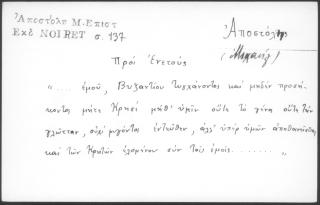 Ἀποστόλη Μ. Ἐπιστ
Ἐκδ NOIRET σ. 137
Ἀποστόλης
(Μιχαήλ)
Πρὸς Ἑνετούς
"..... ἐμοῦ, Βυζαντίου τυγχάνοντος καὶ μηδὲν προσή-
κοντος μήτε Κρησὶ μήθ' ὑμῖν οὔτε τὸ γένος οὔτε τὴν
γλῶτταν, οὐχὶ φυγόντος ἐντεῦθεν, ἀλλ' ὑπὲρ ὑμῶν ἀποθανεῖν
καὶ τῶν Κρητῶν ἑλομένου σὺν τοῖς ἐμοῖς........ "